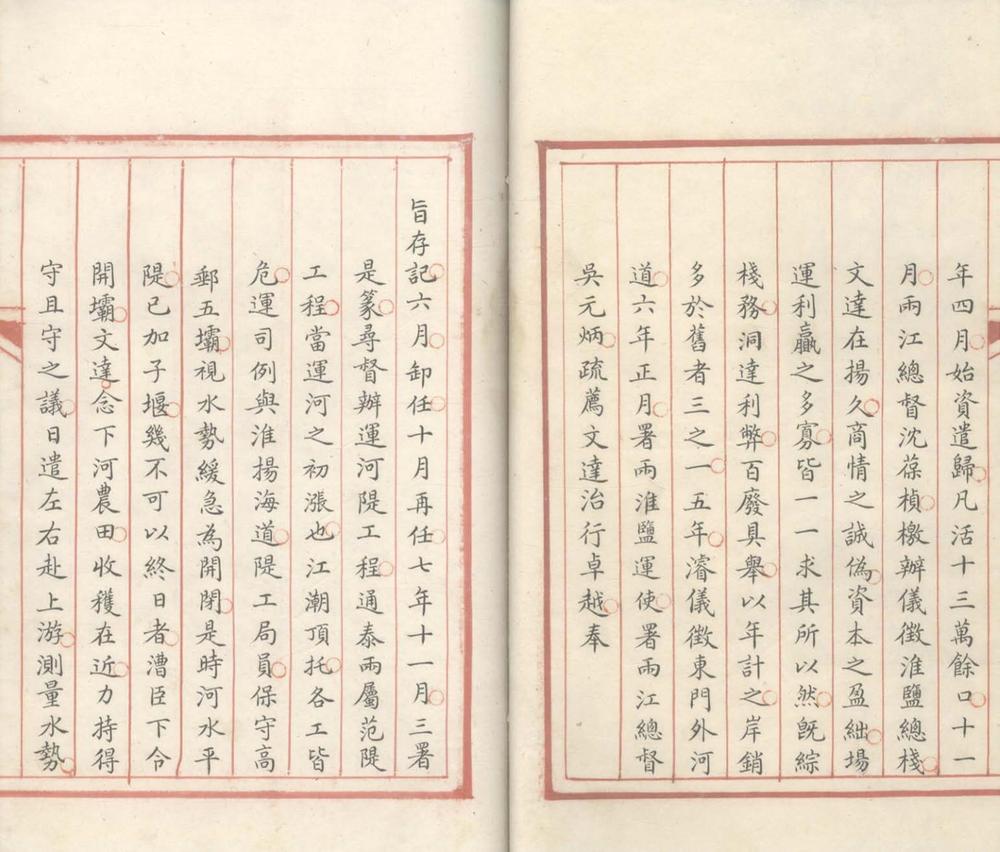 年四月始資遣歸凡活十三萬餘口十一
月兩江總督沈葆楨檄辦儀徵淮鹽總棧
文達在揚久商情之誠偽資本之盈絀場
運利贏之多寡皆一一求其所以然旣綜
棧務洞達利弊百廢具舉以年計之岸銷
多於舊者三之一五年濬儀徵東門外河
道六年正月署兩淮鹽運使署兩江總督
吳元炳疏薦文達治行卓越奉
旨存記六月卸任十月再任七年十一月三署
是篆尋督辦運河隄工程通泰兩屬范隄
工程當運河之初漲也江潮頂托各工皆
危運司例與淮揚海道隄工局員保守高
郵五壩視水勢緩急為開閉是時河水平
隄已加子堰幾不可以終日者漕臣下令
開壩文達念下河農田收穫在近力持得
守且守之議日遣左右赴上游測量水勢